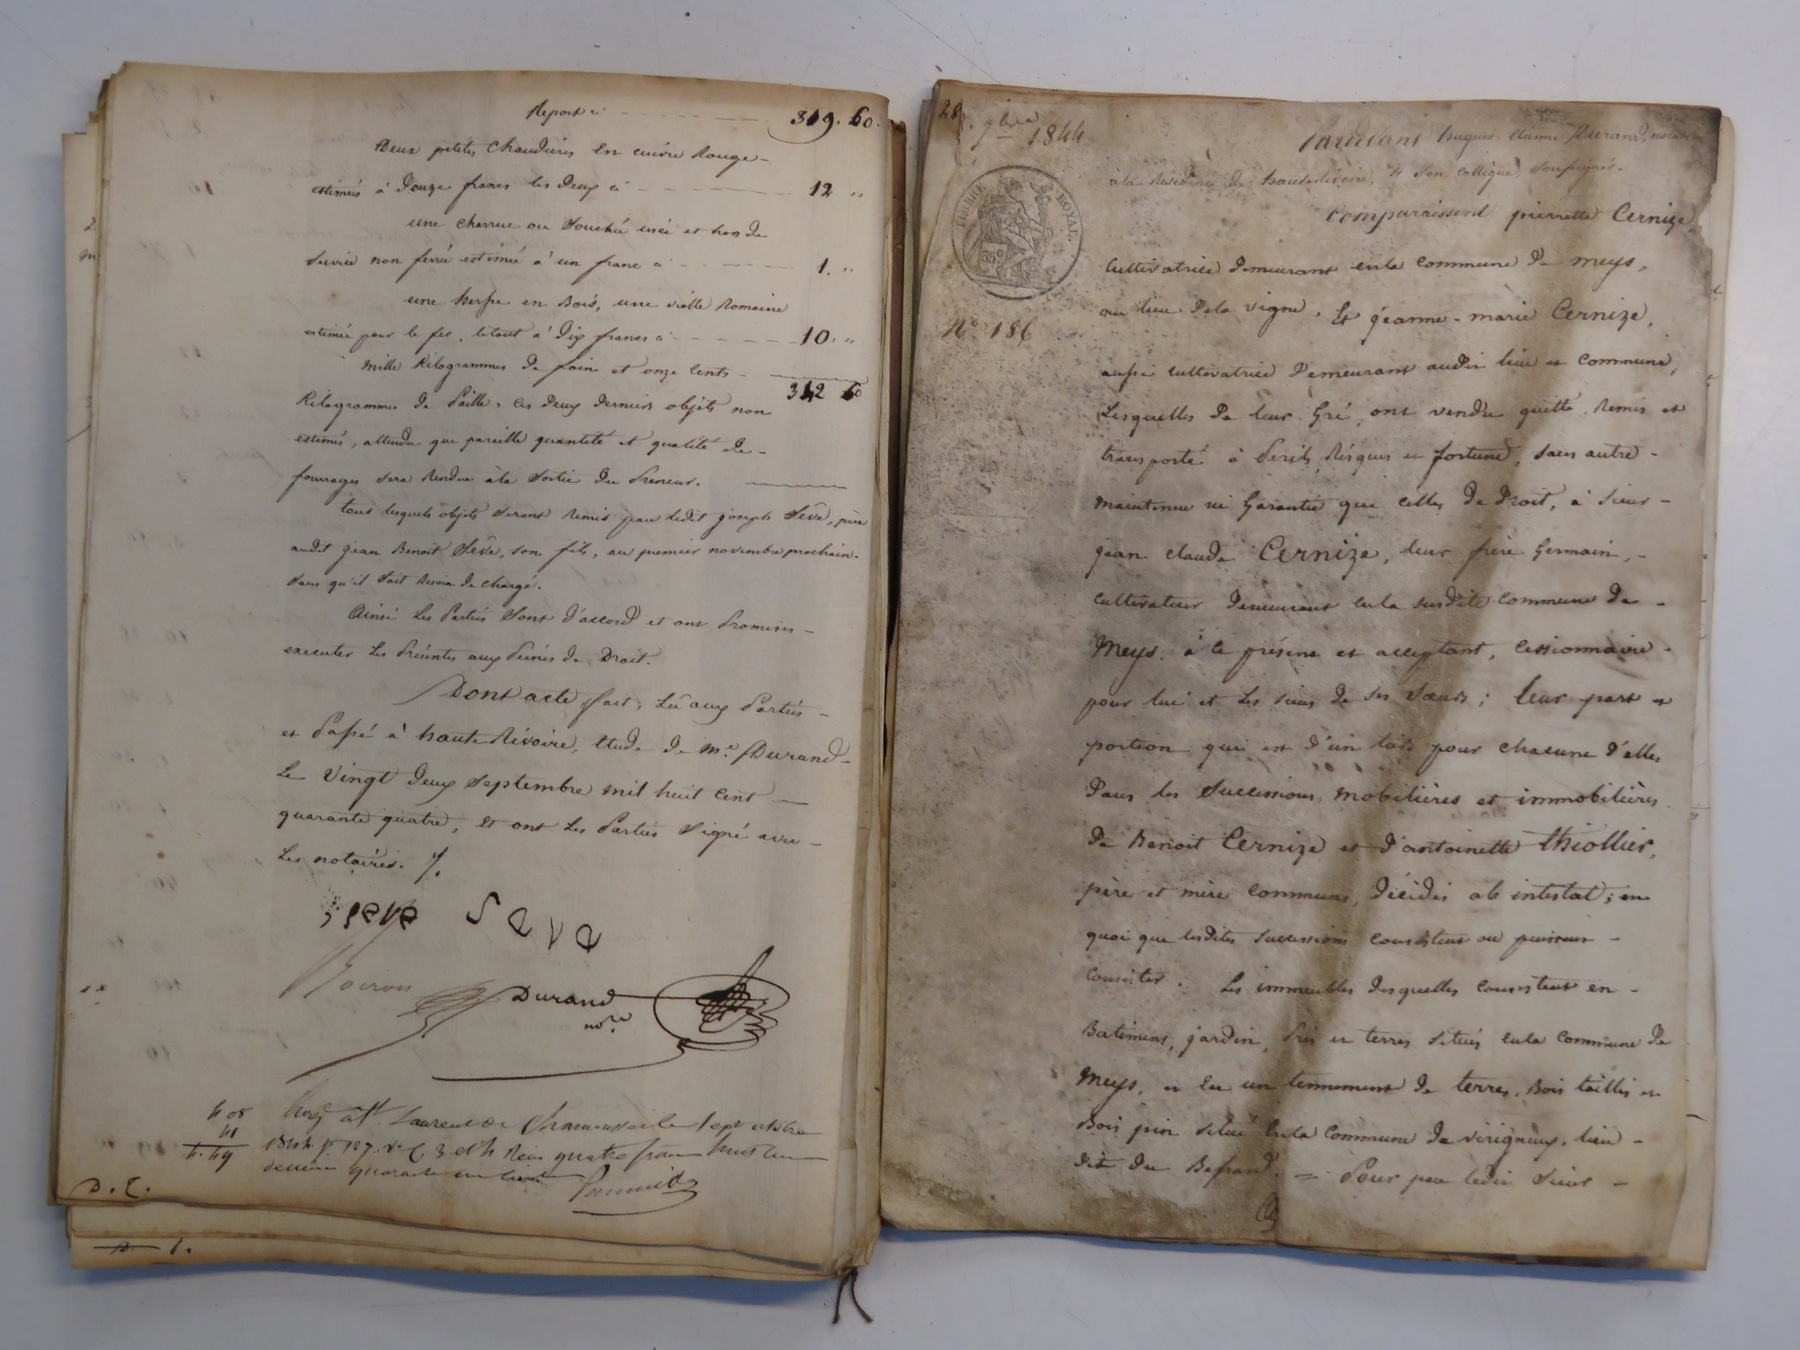 Report ci 319. 60.
Deux petites Chaudières en cuivre Rouge -
estimées à Douze francs les deux ci 12 "
une charrue ou Souchée usée et hors de
Service non ferrée estimée à un franc ci 1. "
une herse en Bois, une vieille Romaine
estimée pour le fer, le tout à Dix francs ci 10. "
342 60
Mille Kilogrammes de foin et onze Cents -
Kilogrammes de Paille, ces deux derniers objets non
estimés, attendu que pareille quantité et qualité de -
fourrages sera Rendue à la Sortie du Preneur.
tous lesquels objets seront Remis par ledit joseph Sève, père
audit jean Benoit Sève, son fils, au premier novembre prochain -
Sans qu'il soit besoin de chargé.
Ainsi les Parties sont d'accord et ont Promises -
executer les Présentes aux Peines de Droit.
Dont acte fait, Lû aux Parties -
et Passé à haute Rivoire, Etude de Me. Durand -
Le Vingt Deux Septembre mil huit Cent -
quarante quatre, Et ont les Parties Signé avec -
les notaires. /.
seve Seve
Durand
nore
4 08
41
4. 49
St. Laurent de Chamousset le sept octobre
1844 fo. 127 Vo C 3 et 4 Reçu quatre francs huit
décime quarante un
D. E.
28. 7bre 1844
TIMBRE ROYAL.
35c
No. 186
Pardevant hugues Etienne Durand, notaire
à la Résidence de haute Rivoire, & Son Collègue, Soussignés.
Comparrissent pierrette Cernize,
Cultivatrice Demeurant en la commune de Meys,
au lieu De la vigne, Et jeanne - marie Cernize,
aussi cultivatrice Demeurant audit lieu et commune,
Lesquelles De leur Gré, ont vendu quitté, Remis et
transporté à Périls, Risques et fortune, sans autre -
maintenue ni Garantie que celles De Droit, à Sieur -
jean claude Cernize, leur frère Germain, -
cultivateur Demeurant en la susdite commune De -
Meys. à ce présent et acceptant, cessionnaire -
pour lui et les siens de ses Sœurs; leur part et
portion qui est d'un tiers pour chacune d'elles
Dans les Successions mobilières et immobilières
De Benoit Cernize et d'antoinette thiollier,
père et mère communs, Décédés ab intestat; en
quoi que lesdites successions consistent ou puissent -
Consister. Les immeubles Desquelles Consistent en -
Batiments, jardin, Prés et terres Situés en la Commune De
Meys, et en un tennement de terres, Bois taillis et
Bois pin situé en la Commune De virigneux, lieu -
dit du = Pour par ledit Sieur -